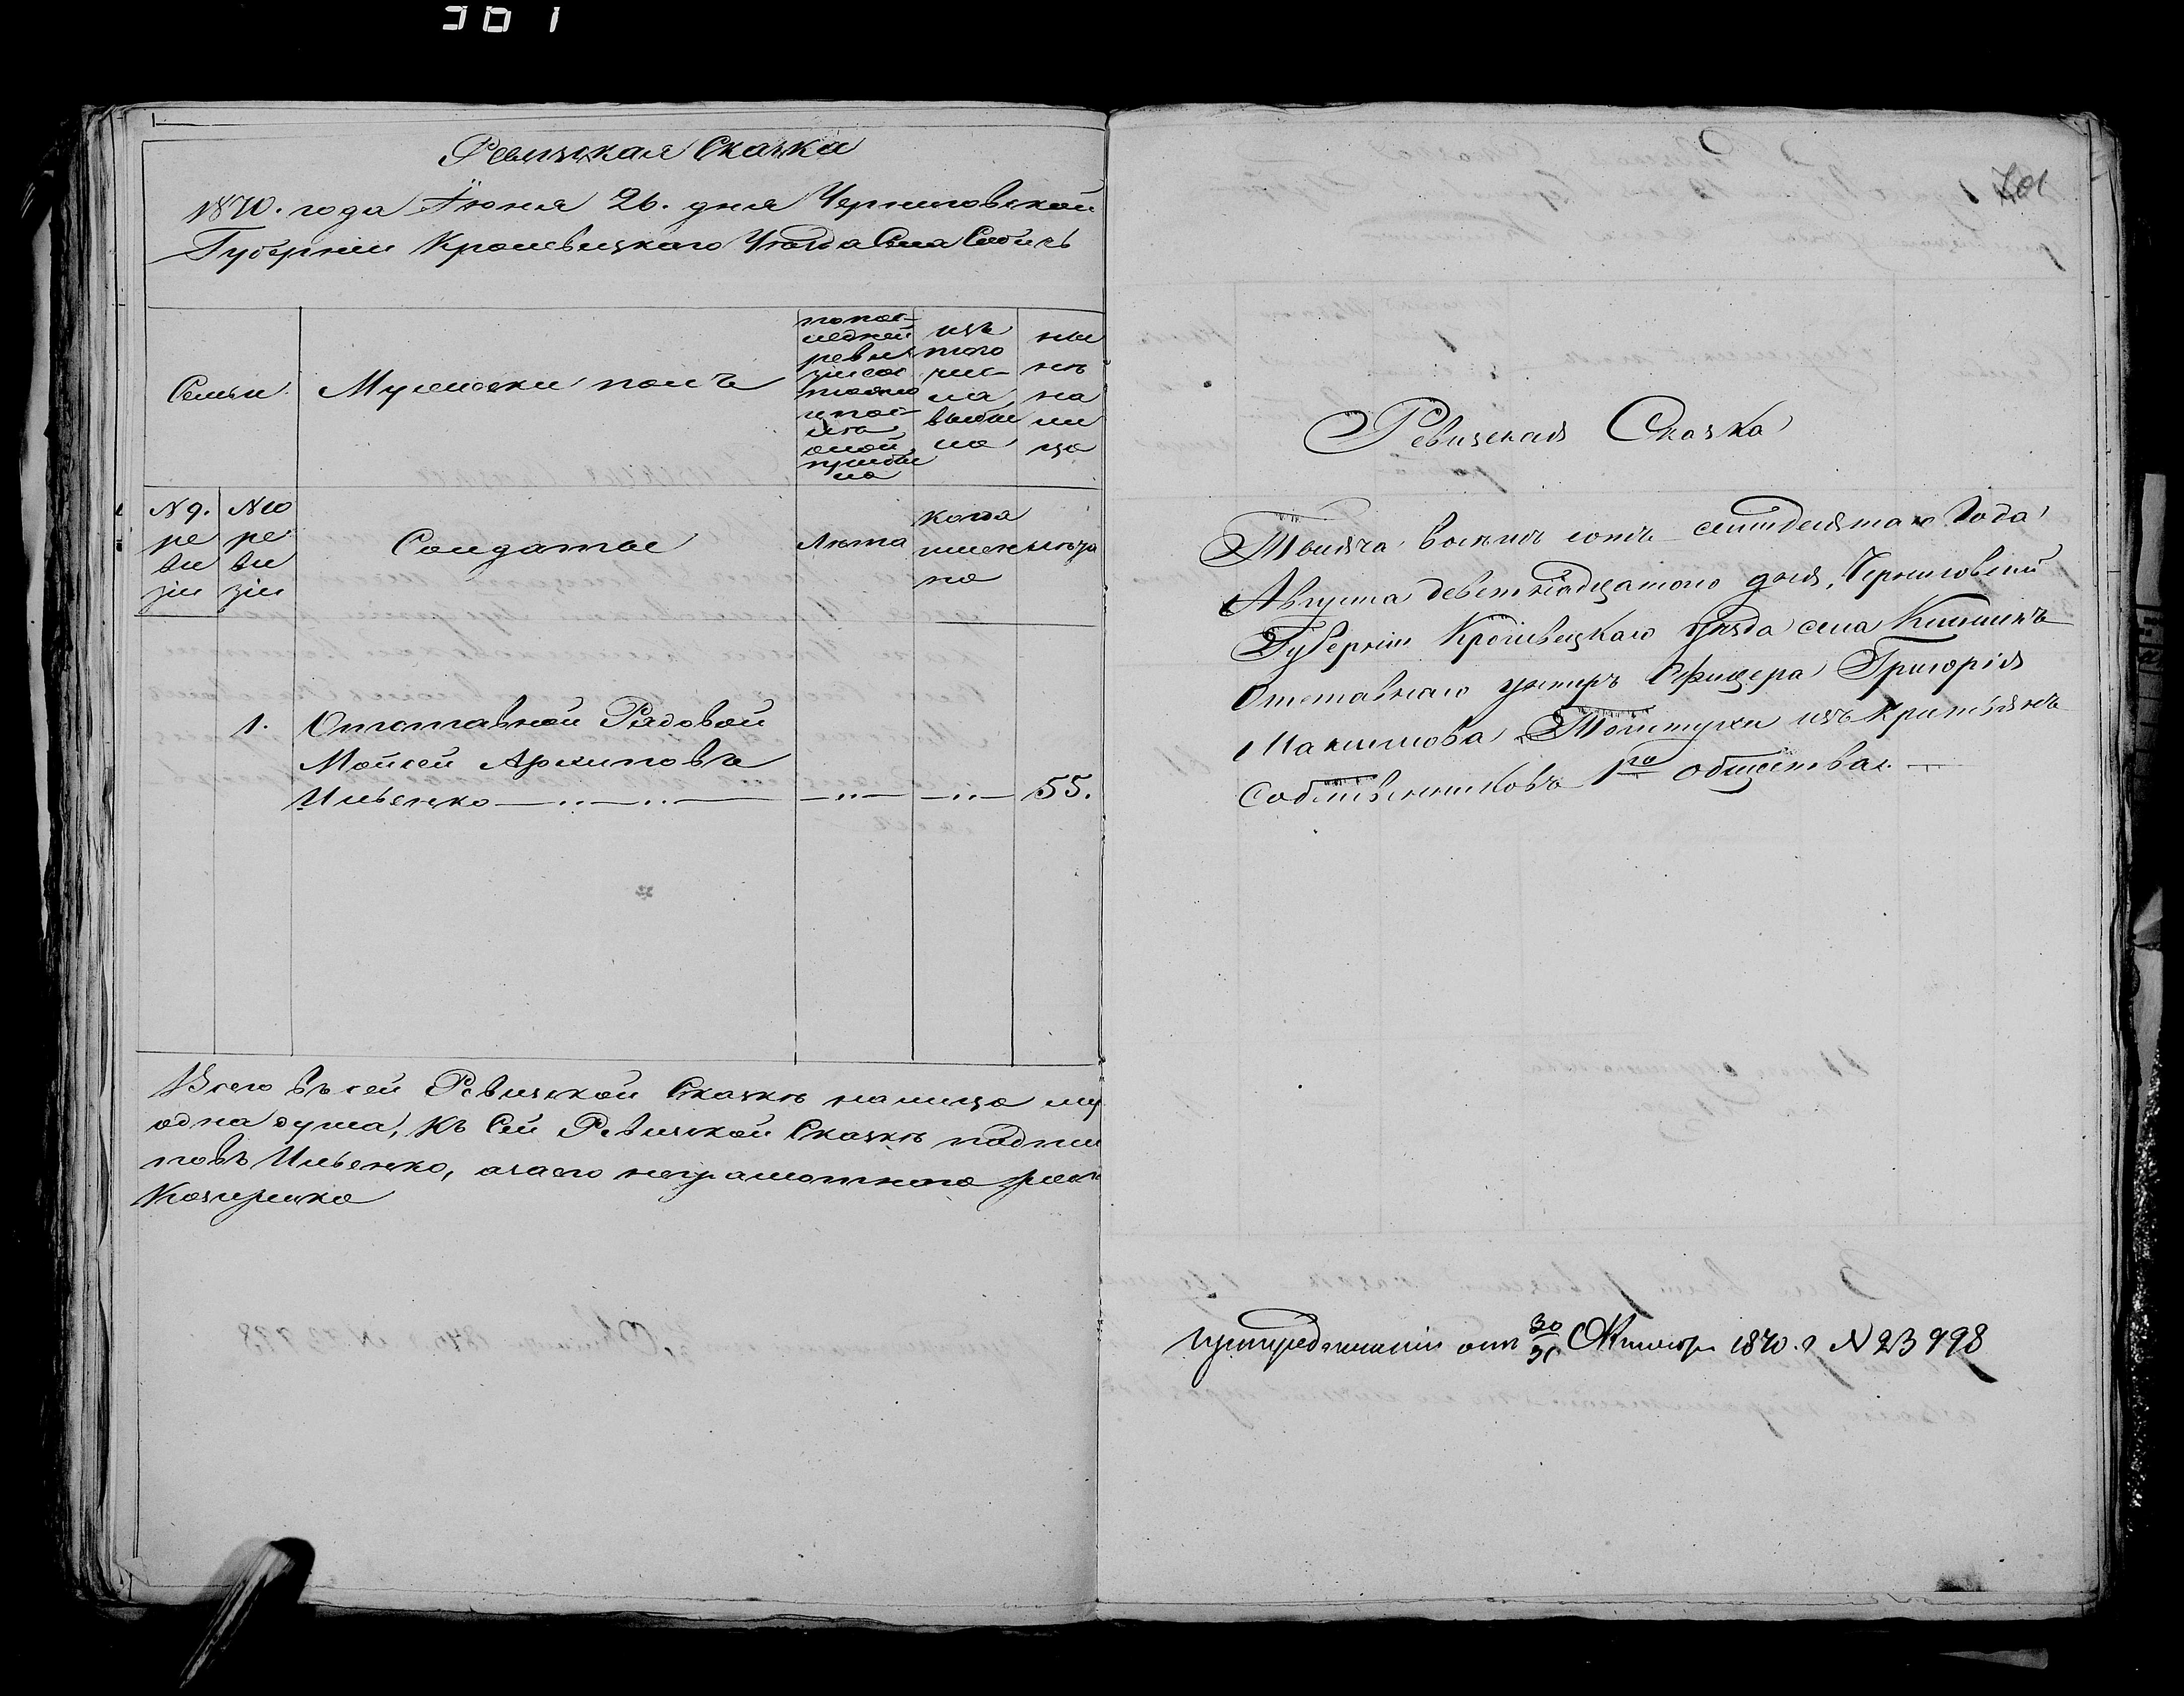 301
Ревизская Сказка
1870. года Июня 26. дня Черниговской
Губернии Кролевецкого Уезда Села Собичь
Семьи
Мужески полъ
попос-
ледней
реви
зии сос
тояло
и пос-
ле
оной
прибы
ло
изъ
того
чис-
ла
выбы
ло
ны
нѣ
на
ли
цо
N 9.
ре
ви
зіи
N 10
ре
ви
зіи
Солдатые
Лета
когда
именно
лета
1. Отставной Рядовой
Мойсей Архиповъ
Ильенко 55.
Всего въ сей Ревизской Сказкѣ налицо му
одна душа, Къ Сей Ревизской Сказкѣ подпи
повъ Ильенко, а за его неграмотного
201
Ревизская Сказка
Тысяча восемь сотъ семдесятаго Года
Августа девятнадцатого дня, Черниговский
Губерніи Кролевецкаго уезда села
Отставнаго унтеръ Офицера Григорія
Максимова Толстухи изъ крестьянъ
Собственниковъ 1го общества.
от 30/31 Октября 1870. г N 23998